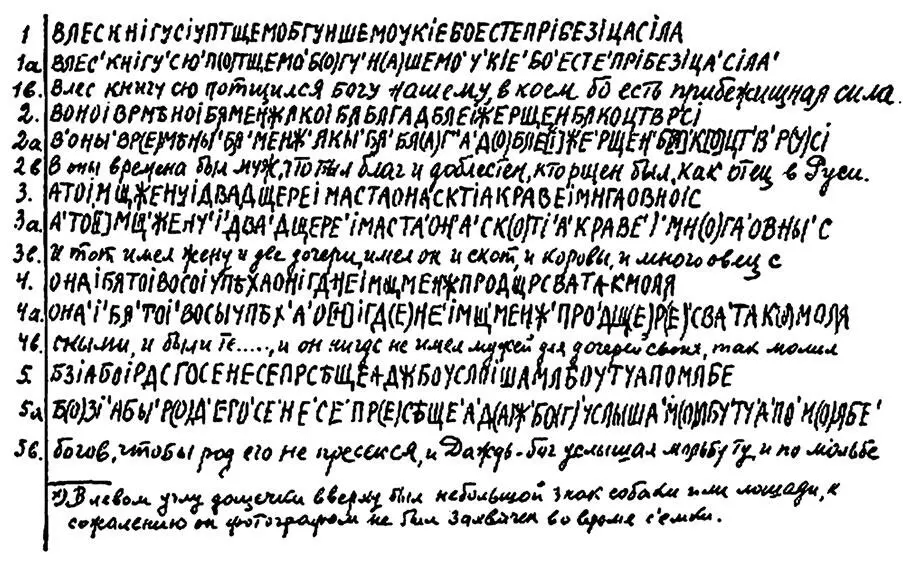 1 ВЛЕСКНІГУСІУПТЩЕМОБГУНШЕМОУКІЕБОЕСТЕПРІБЕЗІЦАСІЛА
1а ВЛЕС'КНІГУ'СЮ'П(О)ТЩЕМО'Б(О)ГУ'Н(А)ШЕМО'У'КІЕ'БО'ЕСТЕ'ПРІБЕЗІЦА'СІЛА'
1в. Влес книгу сю потщился богу нашему, в коем бо есть прибежищная сила.
2. ВОНОІВРМѢНОІБЯМЕНЖЯКОІБЯБЛГАДБЛЕІЖЕРЩЕНБЯКОЦТВРСІ
2а В'ОНЫ'ВР(Е)МѢНЫ'БЯ'МЕНЖ'ЯКЫ'БЯ'БЛ(А)Г'А'Д(О)БЛЕ[І]ЖЕ'РЩЕН'БЯ'К[О]ЦТ'В'Р(У)СІ
2в В оны времена был муж, который был благ и доблестен, кто рщен был, как отец в Руси.
3. АТОІМЩЖЕНУІДВАДЩЕРЕІМАСТАОНАСКТІАКРАВЕІМНГАОВНОІС
3а А'ТО[І]МЩ'ЖЕНУ'І'ДВА'ДЩЕРЕ'ІМАСТА'ОН'А'СК(О)ТІ'А'КРАВЕ'І'МН(О)ГА'ОВНЫ'С
3в. И тот имел жену и две дочери, имел он и скот, и коровы, и много овец с
4. ОНАІБЯТОІВОСОІУПѢХАОНІГДНЕІМЩМЕНЖПРОДЩРСВАТАКМОЛЯ
4а ОНА'І'БЯ'ТОІ'ВОСЫ'УПѢХ'А'О[Н]ІГД(Е)НЕ'ІМЩ'МЕНЖ'ПРО'ДЩ(Е)Р(Е)'СВА'ТАК(А)МОЛЯ
4в. оными, и были те....., и он нигде не имел мужей для дочерей своих, так молил
5. БЗІАБОІРДСГОСЕНЕСЕПРСѢЩЕАДЖБОУСЛОІШАМЛБОУТУАПОМЛБЕ
5а Б(О)ЗІ'АБЫ'Р(О)Д'ЕГО'СЕ'НЕ'СЕ'ПР(Е)СѢЩЕ'А'Д(А)Ж'БО(Г)'УСЛЫША'М(О)ЛБУ'ТУ'А'ПО'М(О)ЛБЕ'
5в. богов, чтобы род его не пресекся, и Даждь-бог услышал мольбу ту, и по мольбе
*) В левом углу дощечки вверху был небольшой знак собаки или лошади, к
сожалению он фотографом не был засвечен во время съемки.